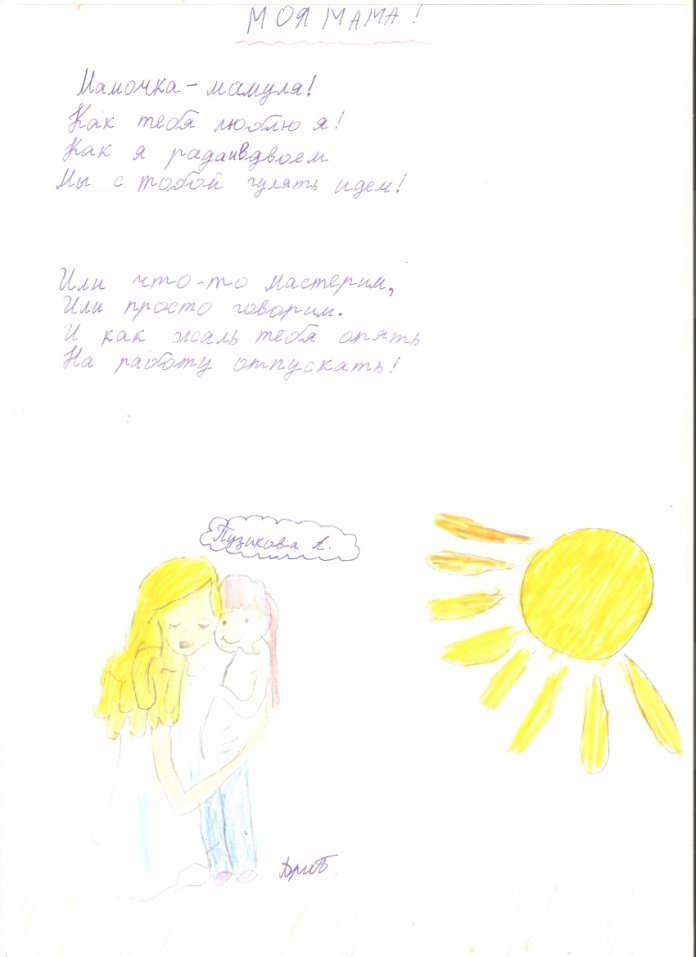 МОЯ МАМА!
Мамочка - мамуля!
Как тебя люблю я!
Как я рада и вдвоем
Мы с тобой гулять идем!
Или что-то мастерим,
Или просто говорим.
И как жаль тебя опять
На работу отпускать!
Пузикова А.